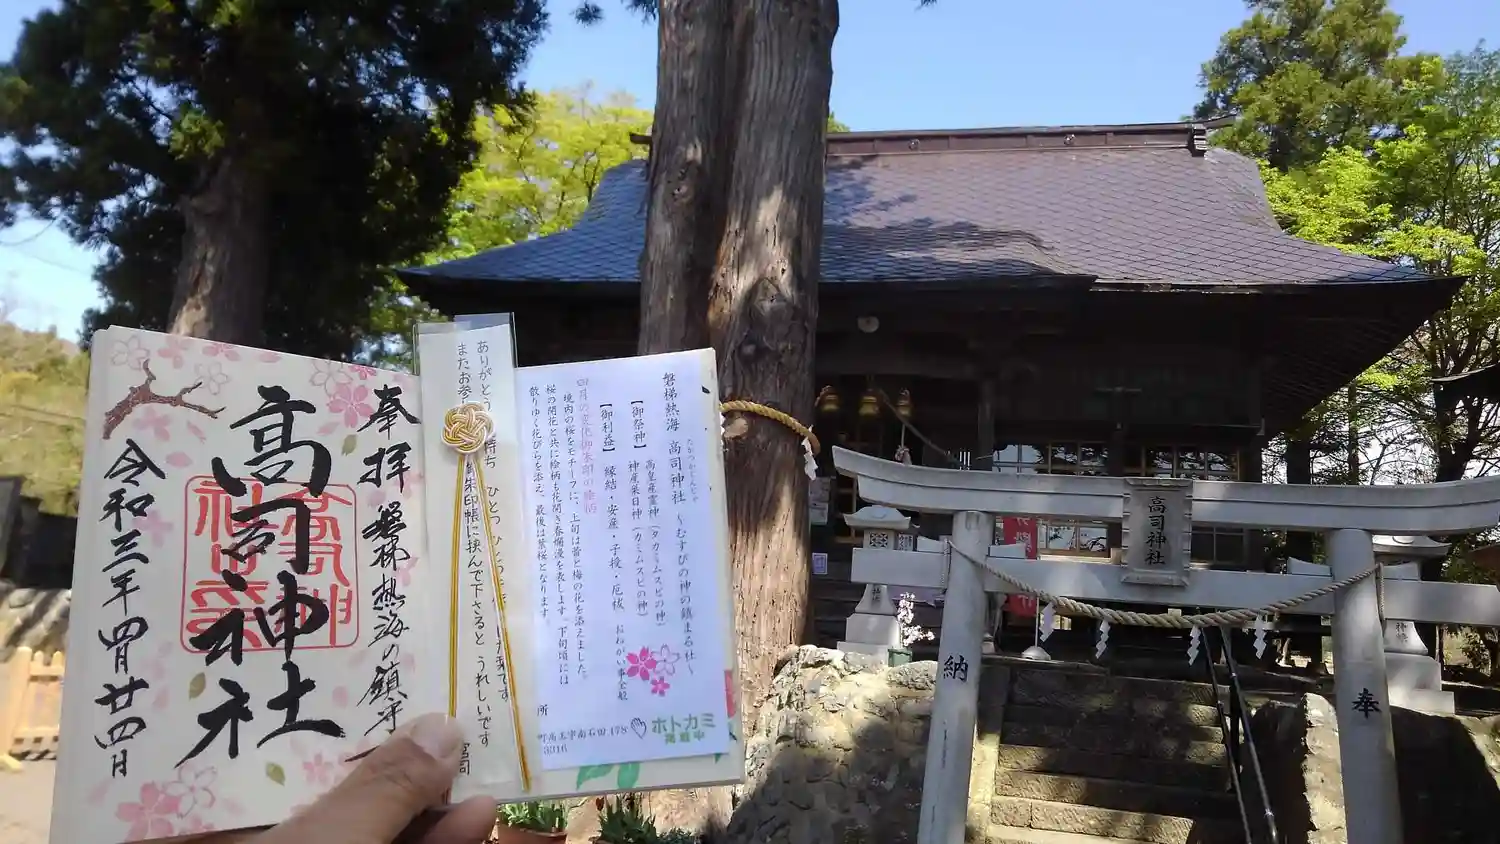 奉拝
磐梯熱海の鎮守
高司神社
令和三年四月廿四日
ありがとう
またお参
ひとつ ひとつ
朱印帳に挟んで下さると うれしいです
宮司
磐梯熱海 高司神社 ~むすびの神の鎮まる社~
たかつかさじんじゃ
【御祭神】 高皇産霊神(タカミムスビの神)
神産巣日神(カミムスビの神)
【御利益】 縁結・安産・子授・厄祓 おねがい事全般
四月の文化御朱印の絵柄
境内の桜をモチーフに、上旬は蕾と梅の花を添えました。
桜の開花と共に絵柄も花開き春爛漫を表します。下旬頃には
散りゆく花びらを添え、最後は葉桜となります。
所
町高玉字南石田 178
3316
ホトカミ
掲載中
高司神社
奉
納